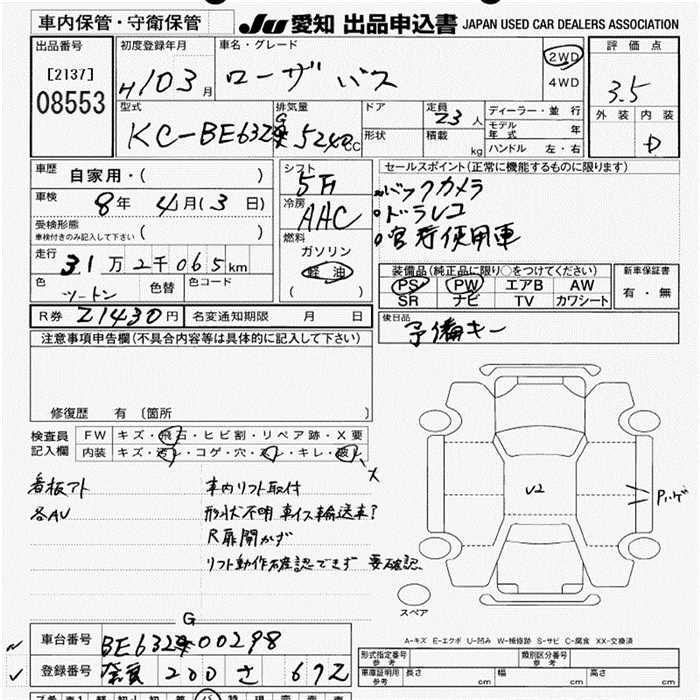 車内保管・守衛保管
JU 愛知 出品申込書 JAPAN USED CAR DEALERS ASSOCIATION
出品番号 [2137] 08553
初度登録年月 H/03月
車名・グレード ローザ バス
2WD
4WD
評価点 3.5
外装 内装 D
型式 KC-BE632
G
排気量 5240CC
ドア
形状
定員 23人
積載 kg
ディーラー・並行
モデル年式 年
ハンドル 左・右
車歴 自家用・( )
車検 8年 4月(3日)
受検形態
車検付きのみ記入して下さい ( )
走行 31万2千065km
色 ツートン 色替 色コード
シフト 5F
冷房 AAC
燃料
ガソリン
軽油
( )
セールスポイント(正常に機能するものに限ります)
バックカメラ
ドラレコ
官庁使用車
装備品(純正品に限り○をつけてください)
PS PW エアB AW
SR ナビ TV カワシート
新車保証書
有・無
R券 21430円 名変通知期限 月 日
後日品 予備キー
注意事項申告欄(不具合内容等は具体的に記入して下さい)
修復歴 有 〔箇所 〕
検査員記入欄
FW キズ・飛石・ヒビ割・リペア跡・X要
内装 キズ・汚レ・コゲ・穴・スレ・キレ・破レ
看板アト
各AU
車内リフト取付
形状不明 車イス輸送車?
R扉開かず
リフト動作確認できず 要確認
U2
Pハゲ
スペア
A-キズ E-エクボ U-凹み W-補修跡 S-サビ C-腐食 XX-交換済
G
車台番号 BE632 00298
登録番号 奈良 200 さ 672
形式指定番号 参考
類別区分番号 参考
車庫証明用 参考 長さ cm 幅 cm 高さ cm